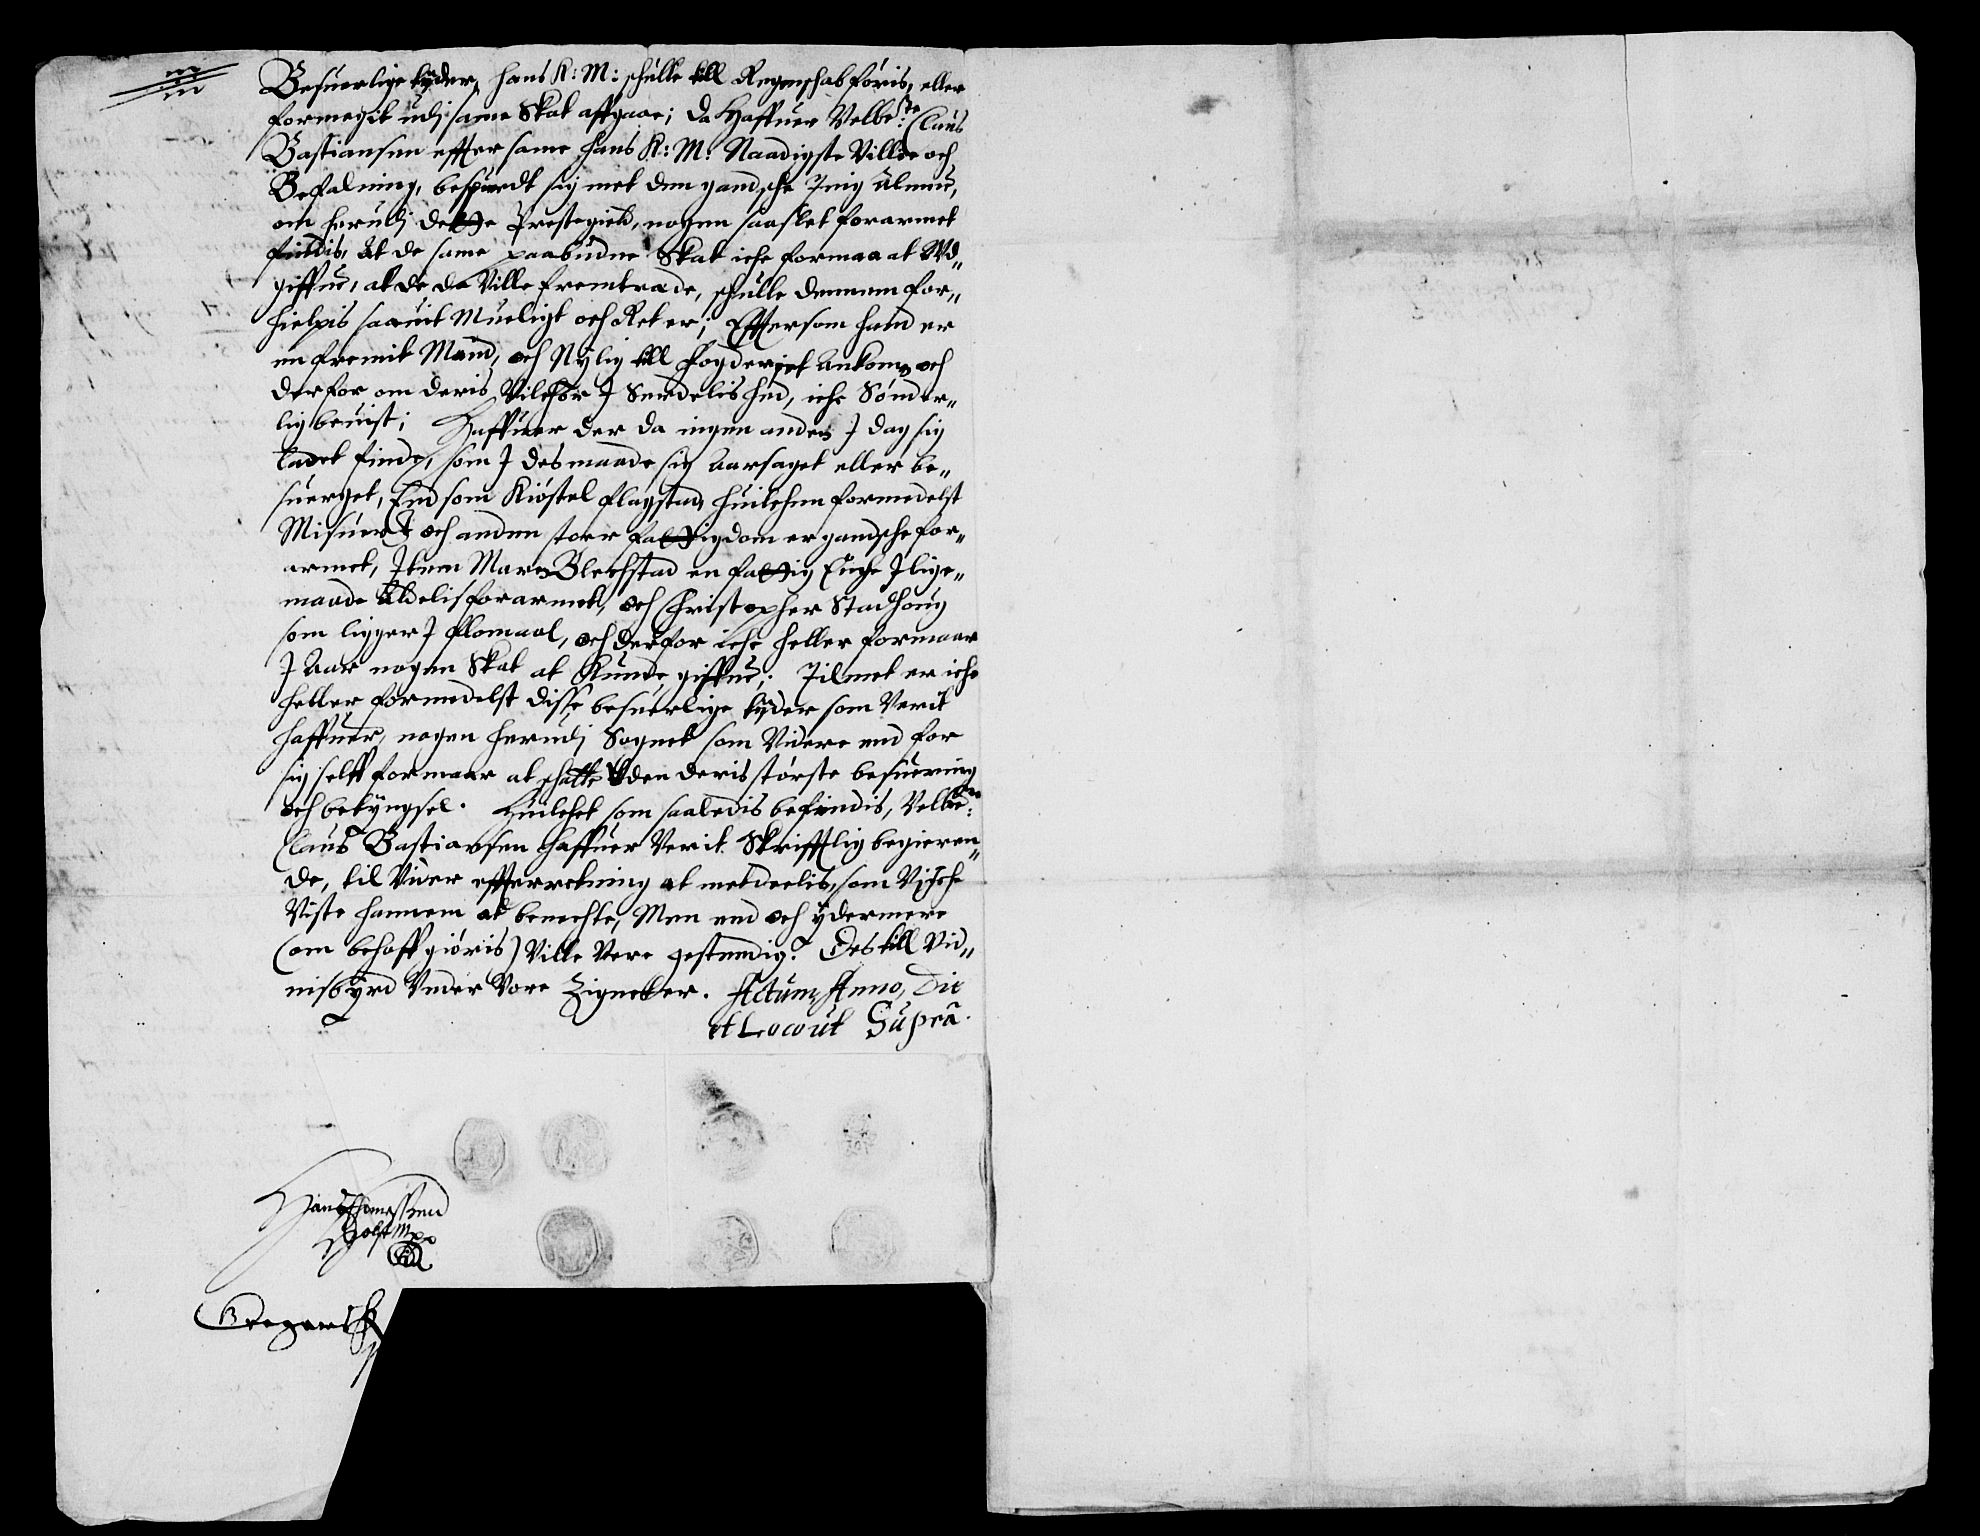 Besuerlige tÿder, hans K: M: schulle till Regenschab føris, eller
formegit udj same Skat affgaae; da Haffuer Velbe:te Claus
Bastiansen effter same Hans K: M: Naadigste Villie och
Befalning, bespurdt sig met den gandsche Menig Almue,
om herudj dette Prestegield, nogen saa slet forarmet
findis, At de same paabudne Skat iche formaa at Ud„
giffue, at de da Ville fremtræde, schulle dennem for„
hielpis saauit Mueligt och Ret er; Effttersom hand er
en fremit Mand, och Nÿlig till fogderiet Ankom, och
derfor om deris Vilchor J Serdelished, iche Sønder„
lig beuist; Haffuer der da ingen anden J dag sig
ladet finde, som J des maade sig Aarsaget eller be„
suerget, End som Kiøstel Flagstad, huilchen formedelst
Misuext och anden stoer fattigdom er gandsche for„
armet, Item Maren Blechstad en fattig Enche J lige„
maade Aldelis forarmet, och Christopher Stadhoug
som ligger J Flomaal, och derfor iche heller formaar
J Aar nogen Skat at Kunde giffue; Tilmet er iche
heller formedelst disse besuerlige tÿder som Verit
haffuer, nogen herudj Sognet som Videre end for
sig selff formaar at schatte Uden deris største besuering
och betÿngsel. Huilchet som saaledis befindis, Velbe:te
Claus Bastiansen haffuer Verit Skrifftlig begieren„
de, til Vider effterretning at metdeelis, som Vj iche
Viste hannem at benechte, Men end och ÿdermere
(om behoff giøris) Ville Vere gestendig. Des till Vid„
nisbÿrd Under Vore Zigneter. Actum, Anno, Die
et Loco ut Suprà.
Hans Thomessen
Holst Mpp
Gregers